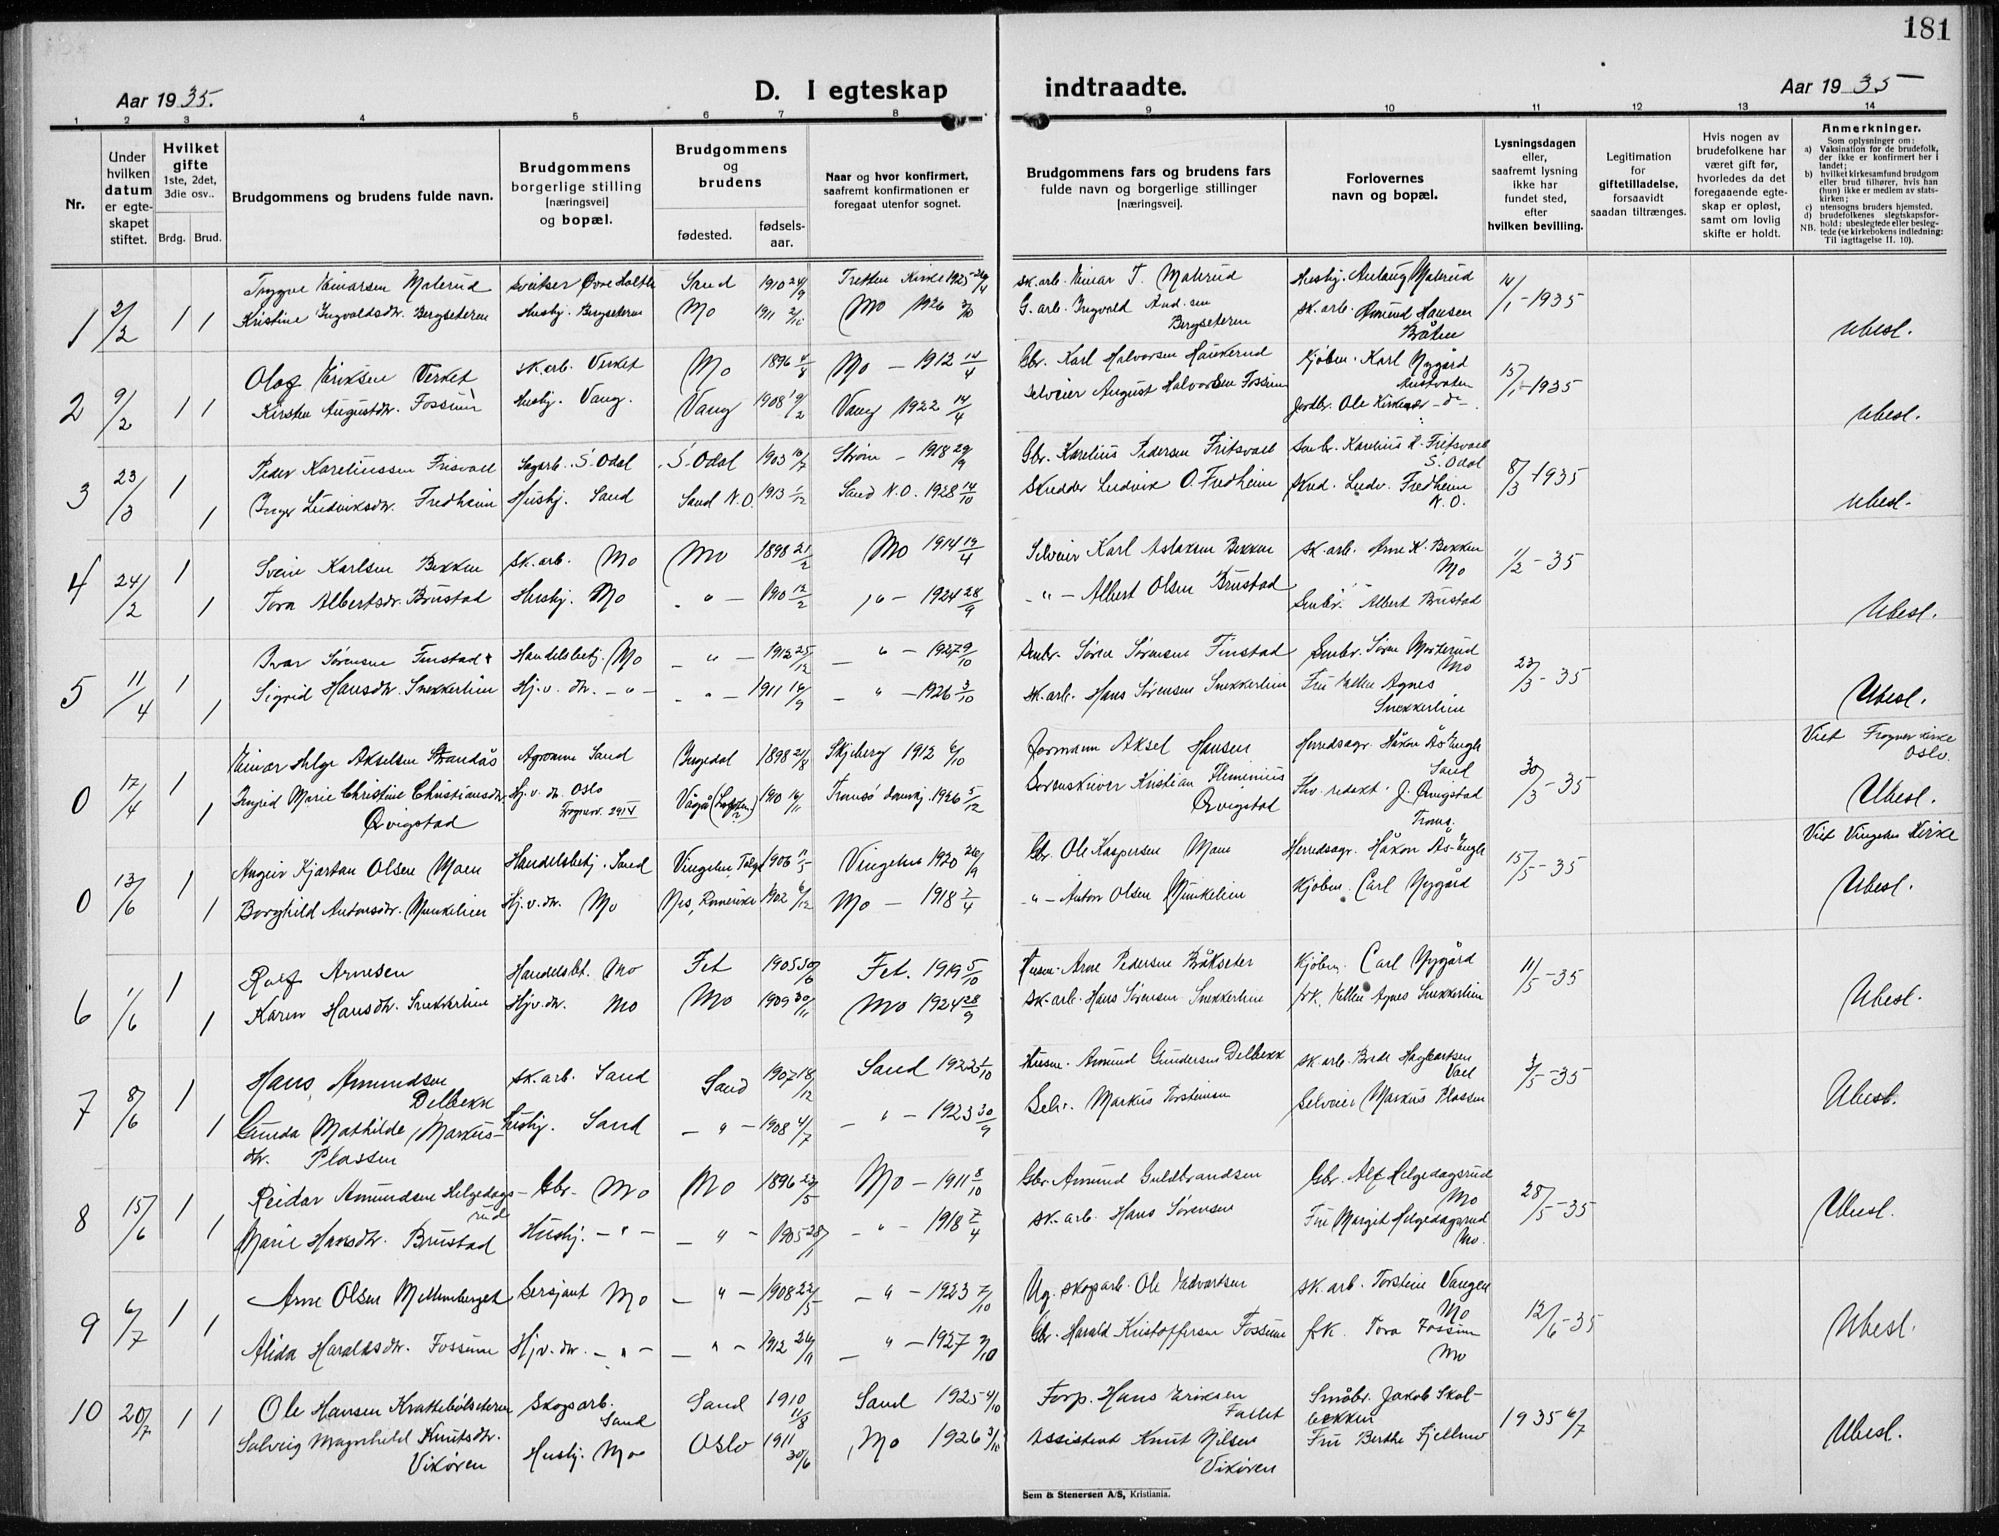 181
Aar 1935.
D. I egteskap indtraadte.
Aar 1935
1 2 3 4 5 6 7 8 9 10 11 12 13 14
Nr.
Under hvilken datum er egteskapet stiftet.
Hvilket gifte 1ste, 2det, 3die osv..
Brdg. Brud.
Brudgommens og brudens fulde navn.
Brudgommens borgerlige stilling [næringsvei] og bopæl.
Brudgommens og brudens
fødested.
fødsels-aar.
Naar og hvor konfirmert, saafremt konfirmationen er foregaat utenfor sognet.
Brudgommens fars og brudens fars fulde navn og borgerlige stillinger [næringsvei].
Forlovernes navn og bopæl.
Lysningsdagen eller, saafremt lysning ikke har fundet sted, efter hvilken bevilling.
Legitimation for giftetilladelse, forsaavidt saadan tiltrænges.
Hvis nogen av brudefolkene har været gift før, hvorledes da det foregaaende egteskap er opløst, samt om lovlig skifte er holdt.
Anmerkninger.
Som oplysninger om:
a) Vaksination for de brudefolk, der ikke er konfirmert her i landet;
b) hvilket kirkesamfund brudgom eller brud tilhører, hvis han (hun) ikke er medlem av statskirken;
c) utensogns bruders hjemsted.
d) brudefolkenes slegtskapsforhold: ubeslegtede eller beslegtede (se kirkebokens indledning:
NB. Til iagttagelse II. 10).
1 2/2 1 1
Trygve Einarsen Malerud Sveitser Øvre Holter Sand 1910 24/9 Tretten Kirke 1925 26/4 sk.arb. Einar T. Malerud Husbj. Aulaug Malerud 14/1-1935
Kristine Ingvaldsdtr. Bergseteren Husbj. Bergseteren Mo 1911 2/10 Mo 1926 3/10 G. arb. Ingvald And.sen Bergseteren sk. arb. Amund Hansen Bråten Ubesl.
2 9/2 1 1
Olaf Eriksen Verket sk.arb. Verket Mo 1896 4/8 Mo - 1912 14/4 Gbr. Karl Halvorsen Haukerud Kjøbm. Karl Nygård Austvatn 15/1-1935
Kirsten Augustdtr. Fossum Husbj. Vang. Vang 1908 19/2 Vang 1922 14/4 Selveier August Halvorsen Fossum Jordbr. Ole Kirkenær - do - Ubesl.
3 23/3 1 1
Peder Kareliussen Frisvoll Sagarb. S. Odal S. Odal 1903 10/7 Strøm - 1918 29/9 Gbr. Karelius Pedersen Fritsvoll Smbr. Karelius K. Fritsvoll S. Odal 8/3-1935
Inger Ludviksdtr. Fredheim Husbj. Sand Sand N.O. 1913 1/12 Sand N.O. 1928 14/10 Skredder Ludvik O. Fredheim Skred. Ludv. Fredheim N.O. Ubesl.
4 24/2 1 1
Svein Karlsen Bekken sk.arb. Mo Mo 1898 21/2 Mo 1914 19/4 Selveier Karl Aslaksen Bekken sk. arb. Arne K. Bekken Mo 1/2-35
Tora Albertsdtr. Brustad Husbj. Mo - " - 190 12/2 " - 1924 28/9 - " - Albert Olsen Brustad Smbr. Albert Brustad Ubesl.
5 11/4 1 1
Ivar Sørensen Finstad Handelsbetj. Mo - " - 1912 25/12 - " - 1927 9/10 Smbr. Søren Sørensen Finstad Smbr. Søren Morterud Mo 23/3-35
Sigrid Hansdtr. Snekkerlien Hj.v. dtr. - " - - " - 1911 16/9 - " - 1926 3/10 sk.arb. Hans Sørensen Snekkerlien Fru Ellen Agnes Snekkerlien Ubesl.
0 17/4 1 1
Einar Helge Akselsen Strandås Agronom Sand Ingedal 1898 21/8 Skjeberg 1912 6/10 Formann Aksel Hansen Herredsagr. Håkon Ås-Engle Sand 30/3-35 Viet Frogner kirke Oslo.
Ingrid Marie Christine Christiansdtr. Qvigstad Hj.v. dtr. Oslo Frognerv. 29 IV 1910 16/11 Tromsø domkj. 1926 5/12 Sorenskriver Kristian Fleminius Qvigstad Hv. redakt. J. Qvigstad Troms. Ubesl.
0 13/6 1 1
Kjartan Olsen Moen Handelsbetj. Sand Vingelen Tolga 1906 11/5 Vingelen 1920 26/9 Gbr. Ole Kaspersen Moen Herredsagr. Håkon Ås-Engle 15/5-35 Viet Vingelen Kirke
Borghild Antonsdtr. Munkelien Hj.v.dtr. Mo Nes, Romerike 1902 6/12 Mo - 1918 7/4 - " - Anton Olsen Munkelien Kjøbm. Carl Nygård Ubesl.
6 1/6 1 1
Rolf Arnesen Handelsbt. Mo Fet 1905 30/6 Fet. 1919 5/10 Husm. Arne Pedersen Bråkseter Kjøbm. Carl Nygård 11/5-35
Karen Hansdtr. Snekkerlien Hjv.dtr. Mo Mo 1909 30/11 Mo 1924 28/9 sk-arb. Hans Sørensen Snekkerlien frk. Ellen Agnes Snekkerlien Ubesl.
7 8/6 1 1
Hans Amundsen Delbekk sk.arb. Sand Sand 1907 18/12 Sand 1922 1/10 Husm. Amund Gundersen Delbekk sk.arb. Bode Hagbartsen Voll /5-35
Gunda Mathilde Markusdtr. Plassen Husbj. Sand - " - 1908 4/7 - " - 1923 30/9 Selv. Markus Torstensen Selveier Markus Plassen Ubesl.
8 15/6 1 1
Reidar Amundsen Helgedagsrud Gbr. Mo Mo 1896 23/5 Mo - 1911 8/10 Gbr. Amund Guldbrandsen Gbr. Alf Helgedagsrud Mo 28/5-35
Marie Hansdtr. Brustad Husbj. - " - - " - 1905 28/1 - " - 1918 7/4 sk-arb. Hans Sørensen Fru Margit Helgedagsrud Mo. Ubesl.
9 6/7 1 1
Arne Olsen Mellemberget Sersjant Mo - " - 1908 22/5 - " - 1923 7/10 Ug. skogarb. Ole Edvartsen sk. arb. Torstein Vangen Mo 12/6-35
Alida Haraldsdtr. Fossum Hjv.dtr. - " - - " - 1912 26/11 - " - 1927 2/10 Gbr. Harald Kristoffersen Fossum frk. Tora Fossum Mo Ubesl.
10 20/7 1 1
Ole Hansen Krattebølseteren Skogsarb. Sand Sand 1910 11/8 Sand 1925 4/10 Forp. Hans Eriksen Fallet Småbr. Jakob Skolbekken 1935 6/7
Solveig Magnhild Knutsdtr. Vikøren Husbj. Mo Oslo 1911 30/6 Mo 1926 3/10 Assistent Knut Nilsen Vikøren Fru Berthe Fjellmo Ubesl.
Sem & Stenersen A/S, Kristiania.